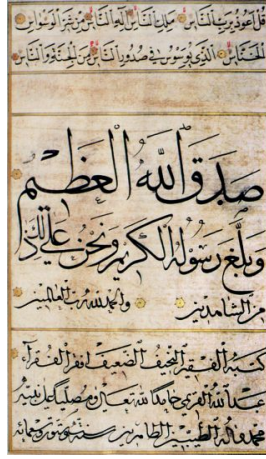 قل أعوذ برب الناس ملك الناس إله الناس من شر الوسواس
الخناس الذي يوسوس في صدور الناس من الجنة والناس
صدق الله العظيم
وبلغ رسوله الكريم ونحن على ذلك
من الشاهدين والحمد لله رب العالمين
كتبه الفقير النحيف الضعيف افقر الفقراء
عبد الله حامدا لله تعالى ومصليا على نبيه
محمد وآله الطيبين الطاهرين سنة وثمانمائة